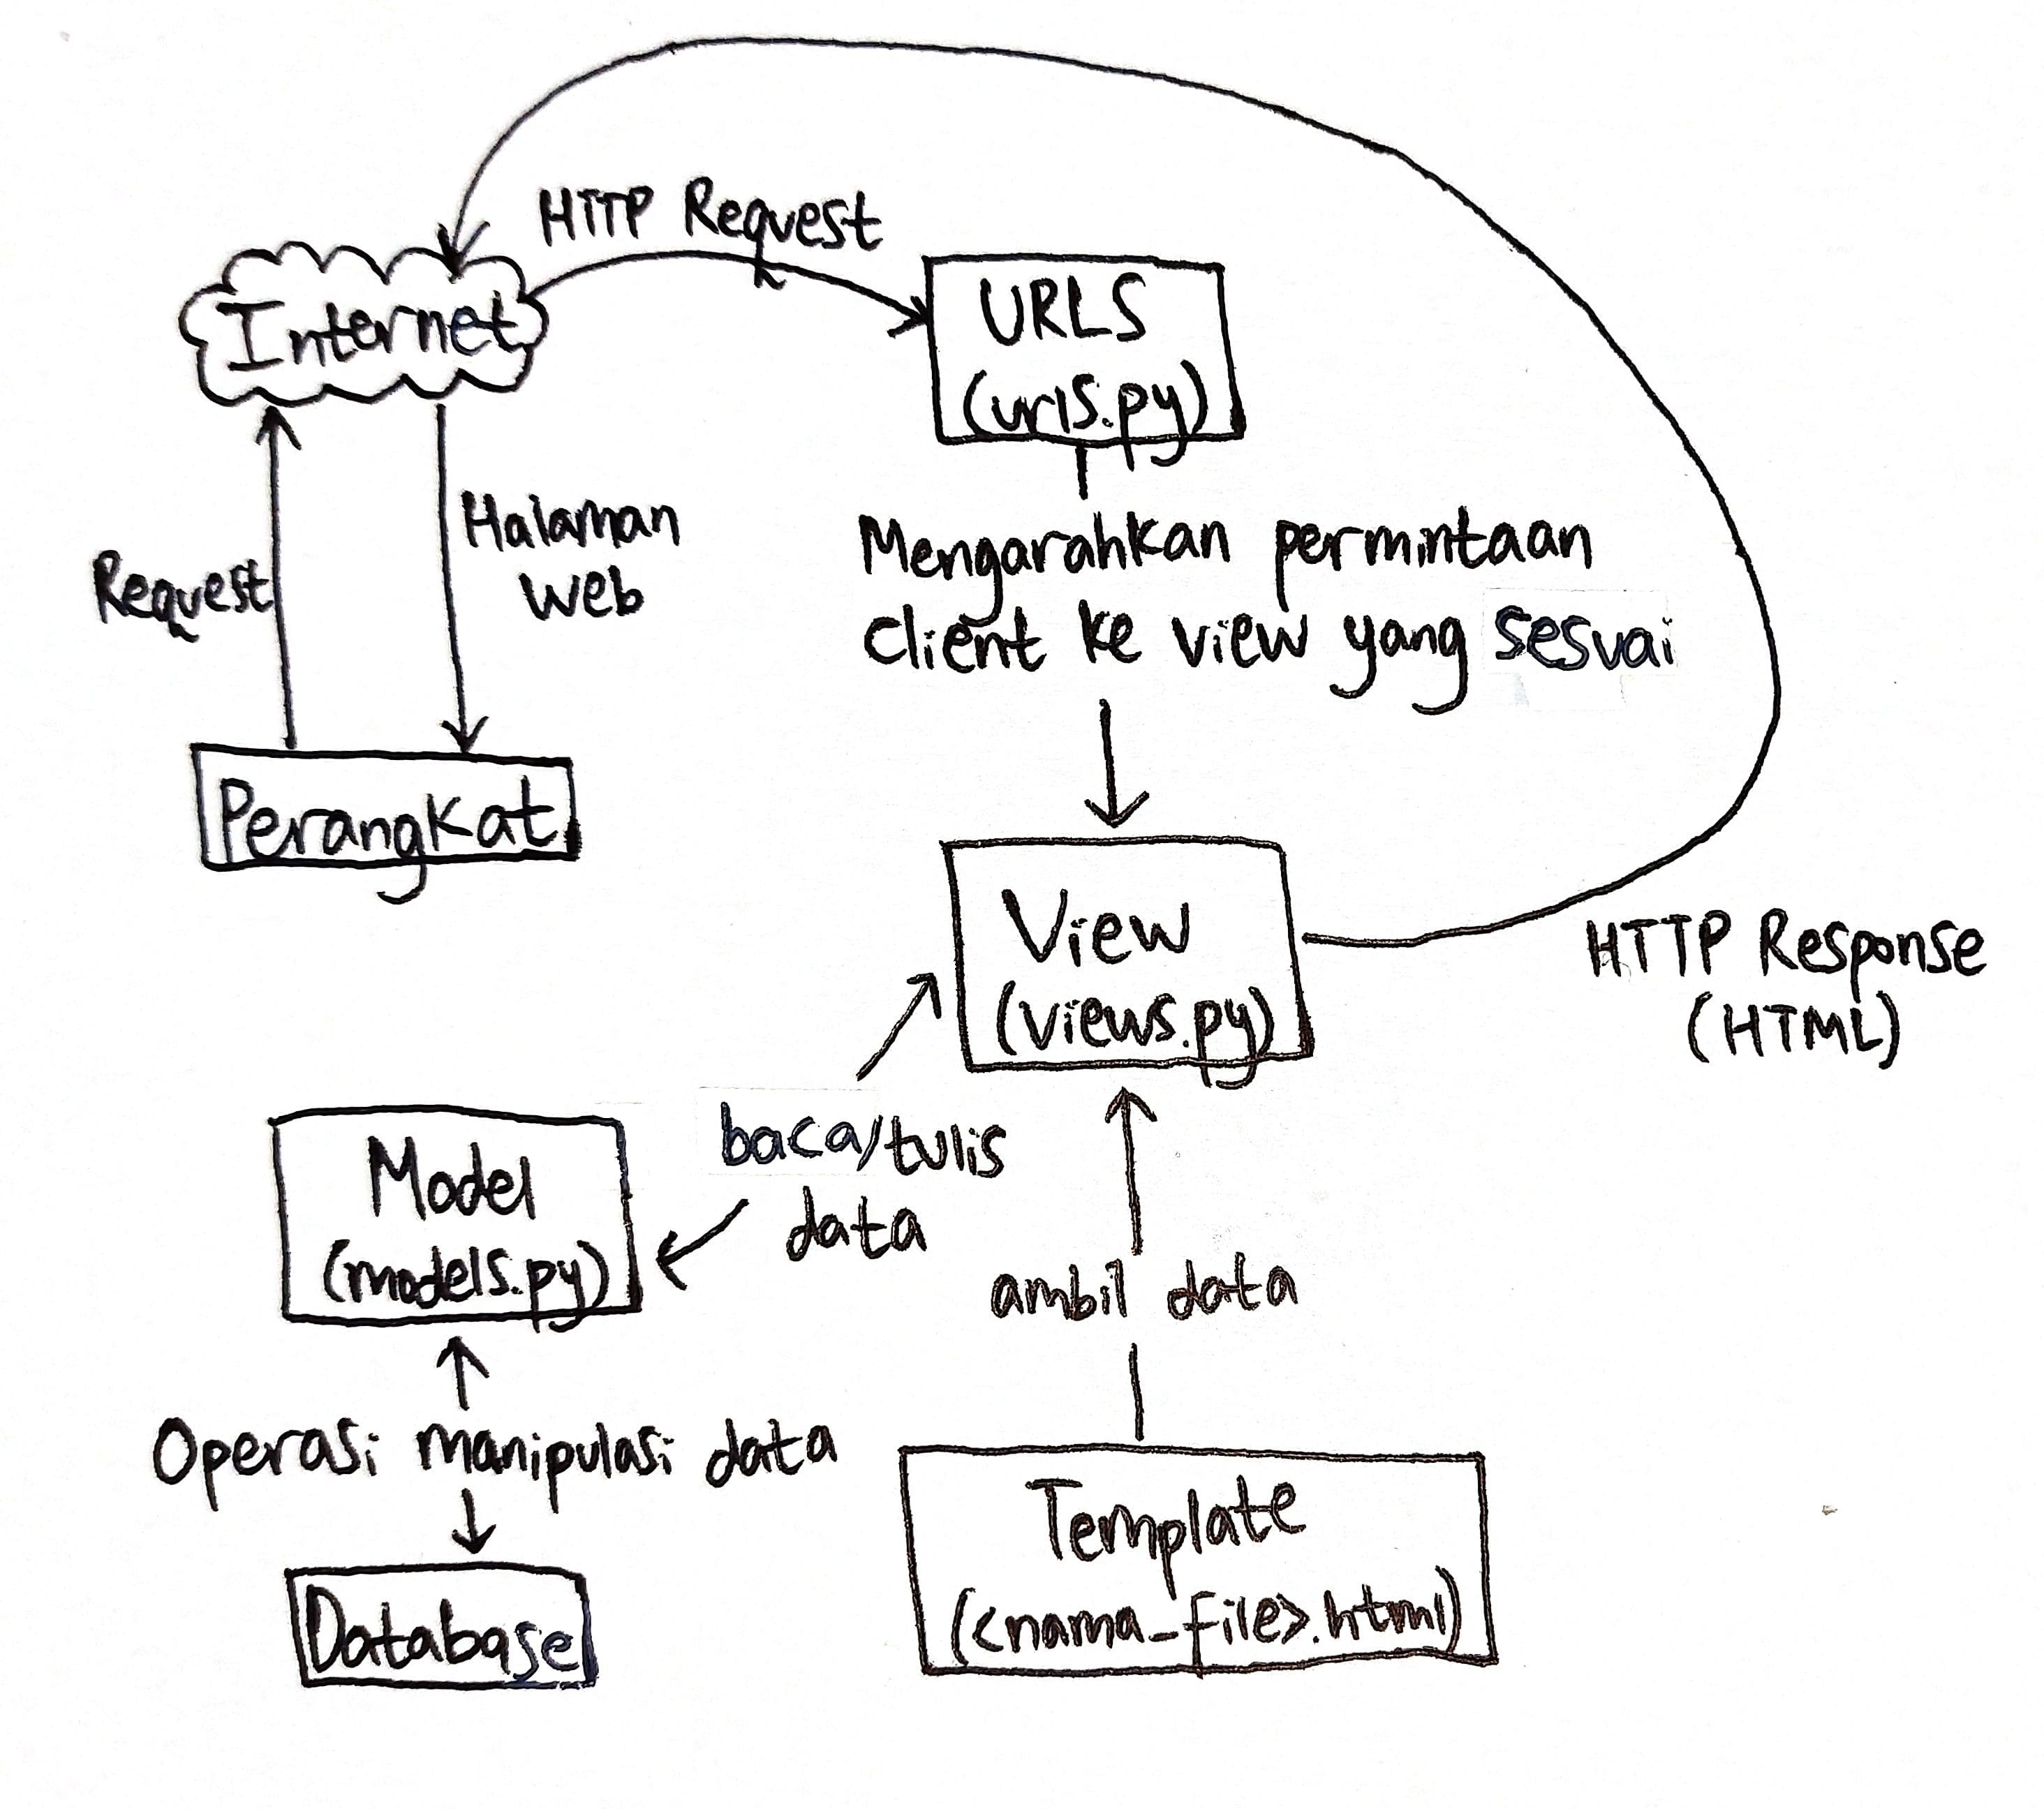 HTTP Request
Internet
URLS
(urls.py)
Request
Halaman
Web
Mengarahkan permintaan
client ke view yang sesuai
Perangkat
View
(views.py)
HTTP Response
(HTML)
Model
(models.py)
baca/tulis
data
ambil data
Operasi manipulasi data
Template
(<nama_file>.html)
Database